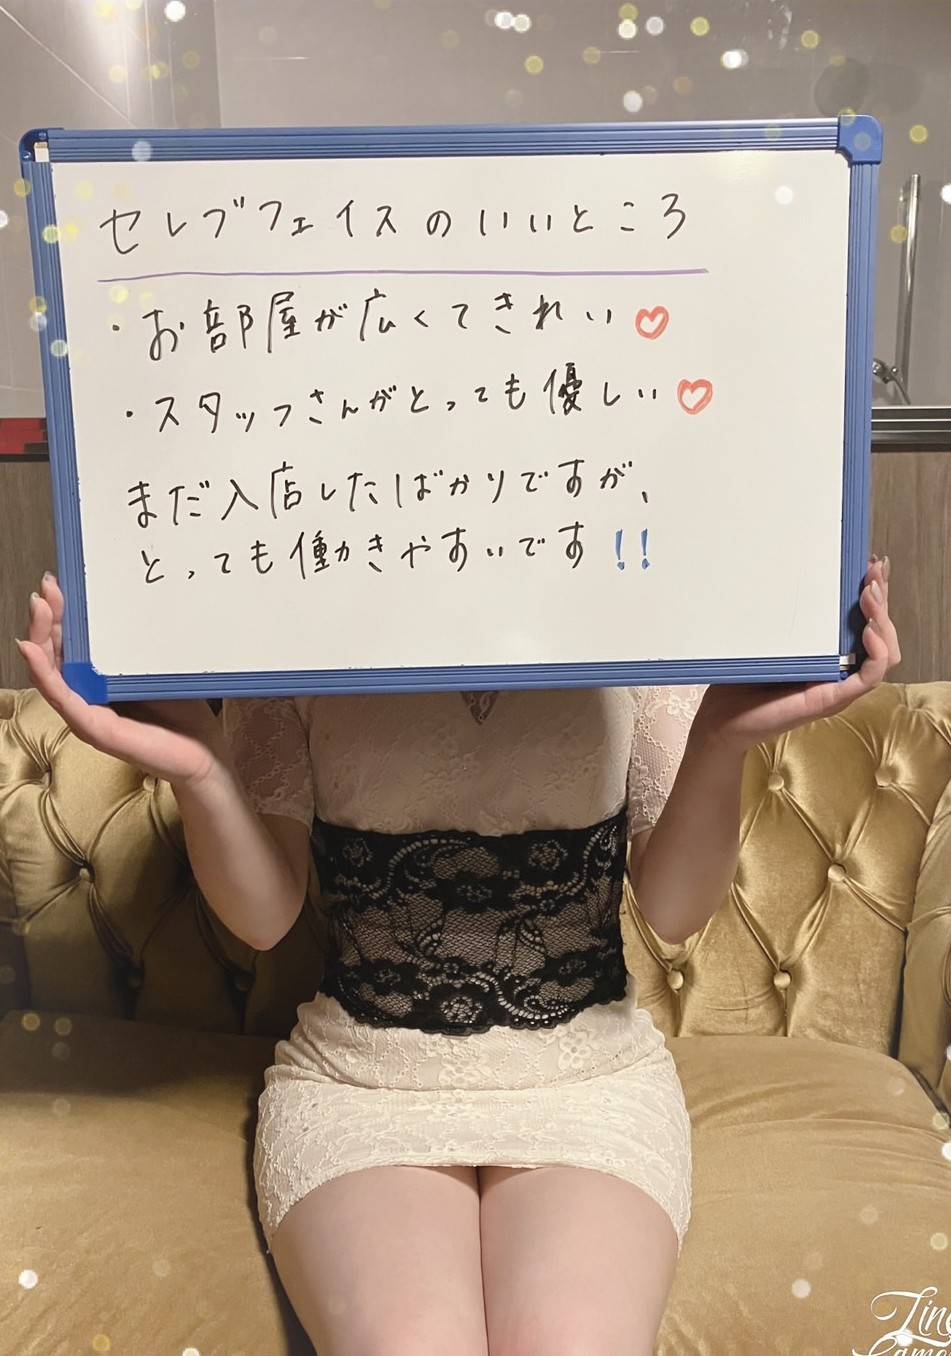 セレブフェイスのいいところ
・お部屋が広くてきれい♡
・スタッフさんがとっても優しい♡
まだ入店したばかりですが、
とっても働きやすいです!!
Line
Camera